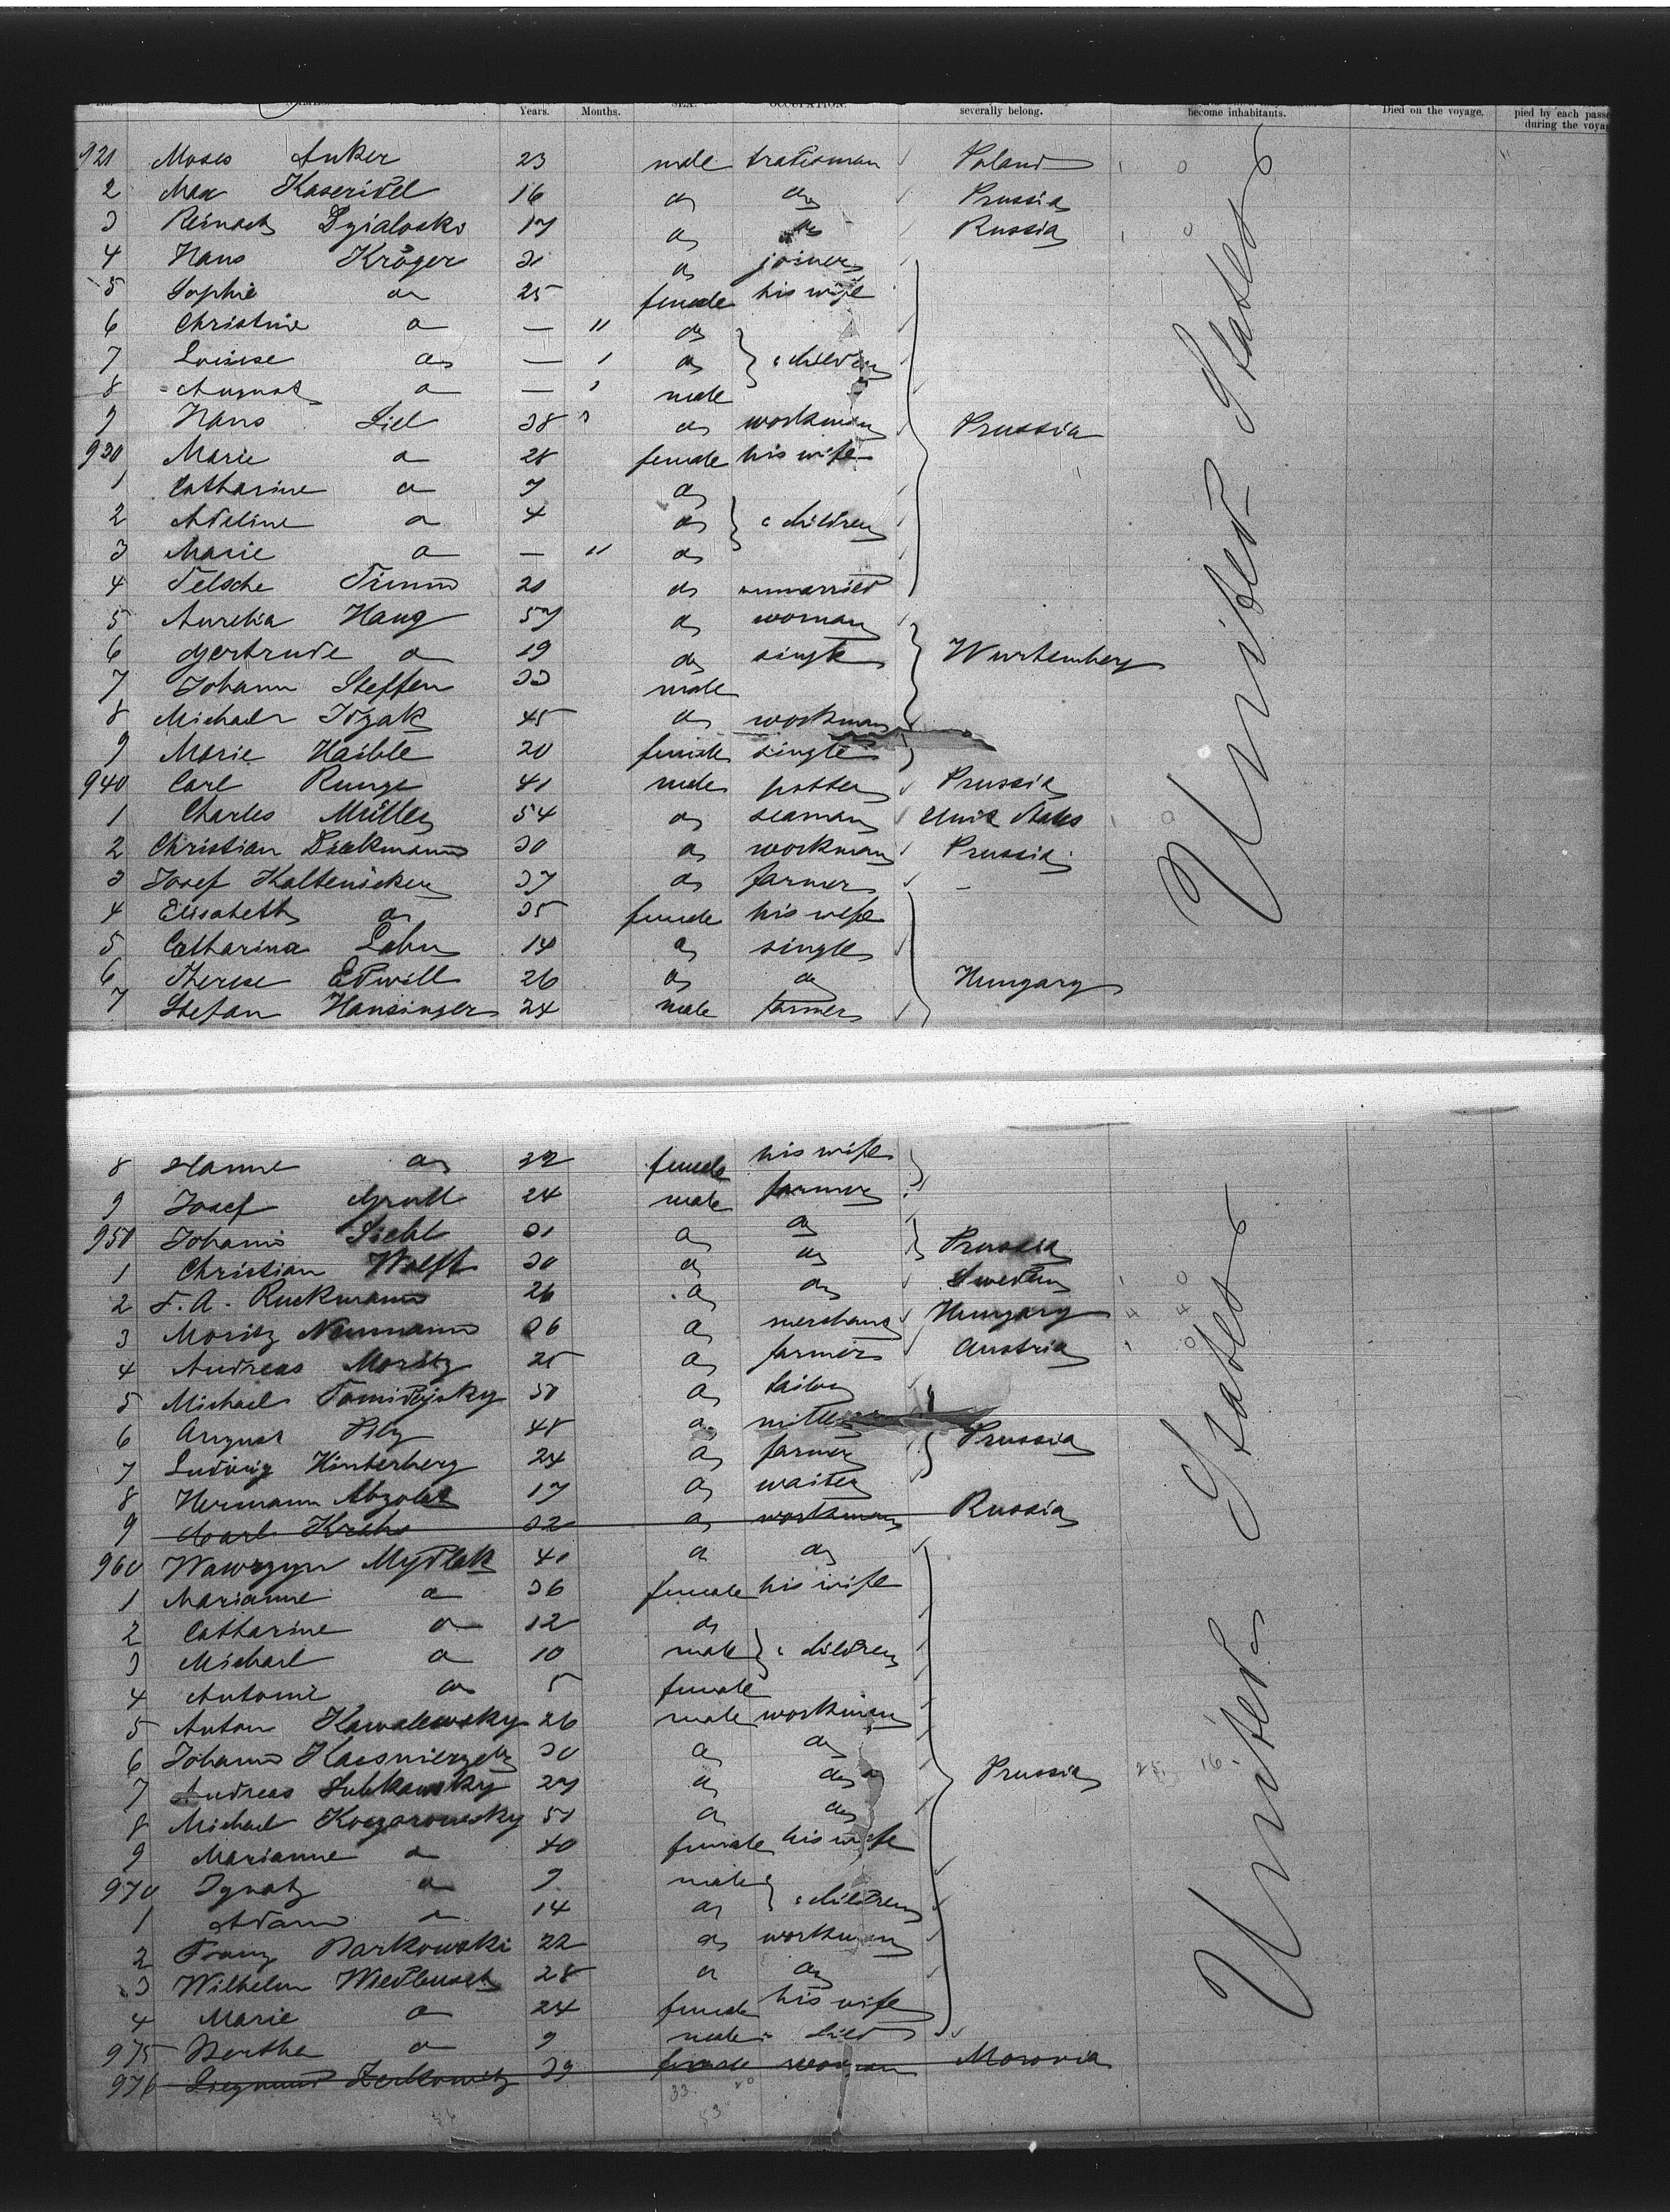 Years. Months. SEX. OCCUPATION. severally belong. become inhabitants. Died on the voyage. pied by each passe
during the voyag
921 Moses Anker 23 male tradesman Poland 1 0
2 Max Kaseridel 16 do do Prussia
3 do do Russia 1 0
4 Hans Kröger 31 do joiner
5 Sophie do 25 female his wife
6 Christine do — 11 do
7 Louise do — 1 do children
8 August do — male
9 Hans Siel 38 do workman Prussia
930 Marie do 28 female his wife
1 Catharine do 7 do
2 Adeline do 4 do children
3 Marie do — 11 do
4 Telsche Timm 20 do unmarried
5 Aurelia Haug 57 do woman
6 Gertrude do 19 do single Wurtemberg
7 Johann Steffen 33 male
8 Michael Idzak 45 do workman
9 Marie Haible 20 female single
940 Carl Runge 41 male potter Prussia
1 Charles Müller 54 do seaman Unit States 1 0
2 Christian Dieckmann 30 do workman Prussia
3 Josef Kaltenicker 37 do farmer
4 Elisabeth do 35 female his wife
5 Catharina Lahn 14 do single
6 Therese Edwill 26 do do Hungary
7 Stefan Hansinger 24 male farmer
United States
8 Hanne do 22 female his wife
9 Josef Grull 24 male farmer
950 Johann Siehl 31 do do
1 Christian Wolff 30 do do Prussia
2 F. A. Ruckmann 26 do do Sweden 1 0
3 Moritz Neumann 36 do merchant Hungary 4 4
4 Andreas Moritz 25 do farmer Austria 1 0
5 Michael 50 do tailor
6 August Pilz 48 do miller Prussia
7 Ludwig Hinterberg 24 do farmer
8 Hermann Abzolet 17 do waiter
9 Carl Krebs 32 do workman Russia
960 Wawrzyn Mydlak 41 do do
1 Marianne do 36 female his wife
2 Catharine do 12 do
3 Michael do 10 male children
4 Antonie do 5 female
5 Anton Kawalewsky 26 male workman
6 Johann Kaesmierzek 30 do do
7 Andreas Lubkowsky 27 do do Prussia 25. 16.
8 Michael Koczorowsky 50 do do
9 Marianne do 40 female his wife
970 Ignatz do 9 male children
1 Adam do 14 do
2 Franz Barkowski 22 do workman
3 Wilhelm 28 do do
4 Marie do 24 female his wife
975 Berthe do 9 male child
976 Siegmund Zerkowitz 39 female woman Moravia
33. 20
53
United States